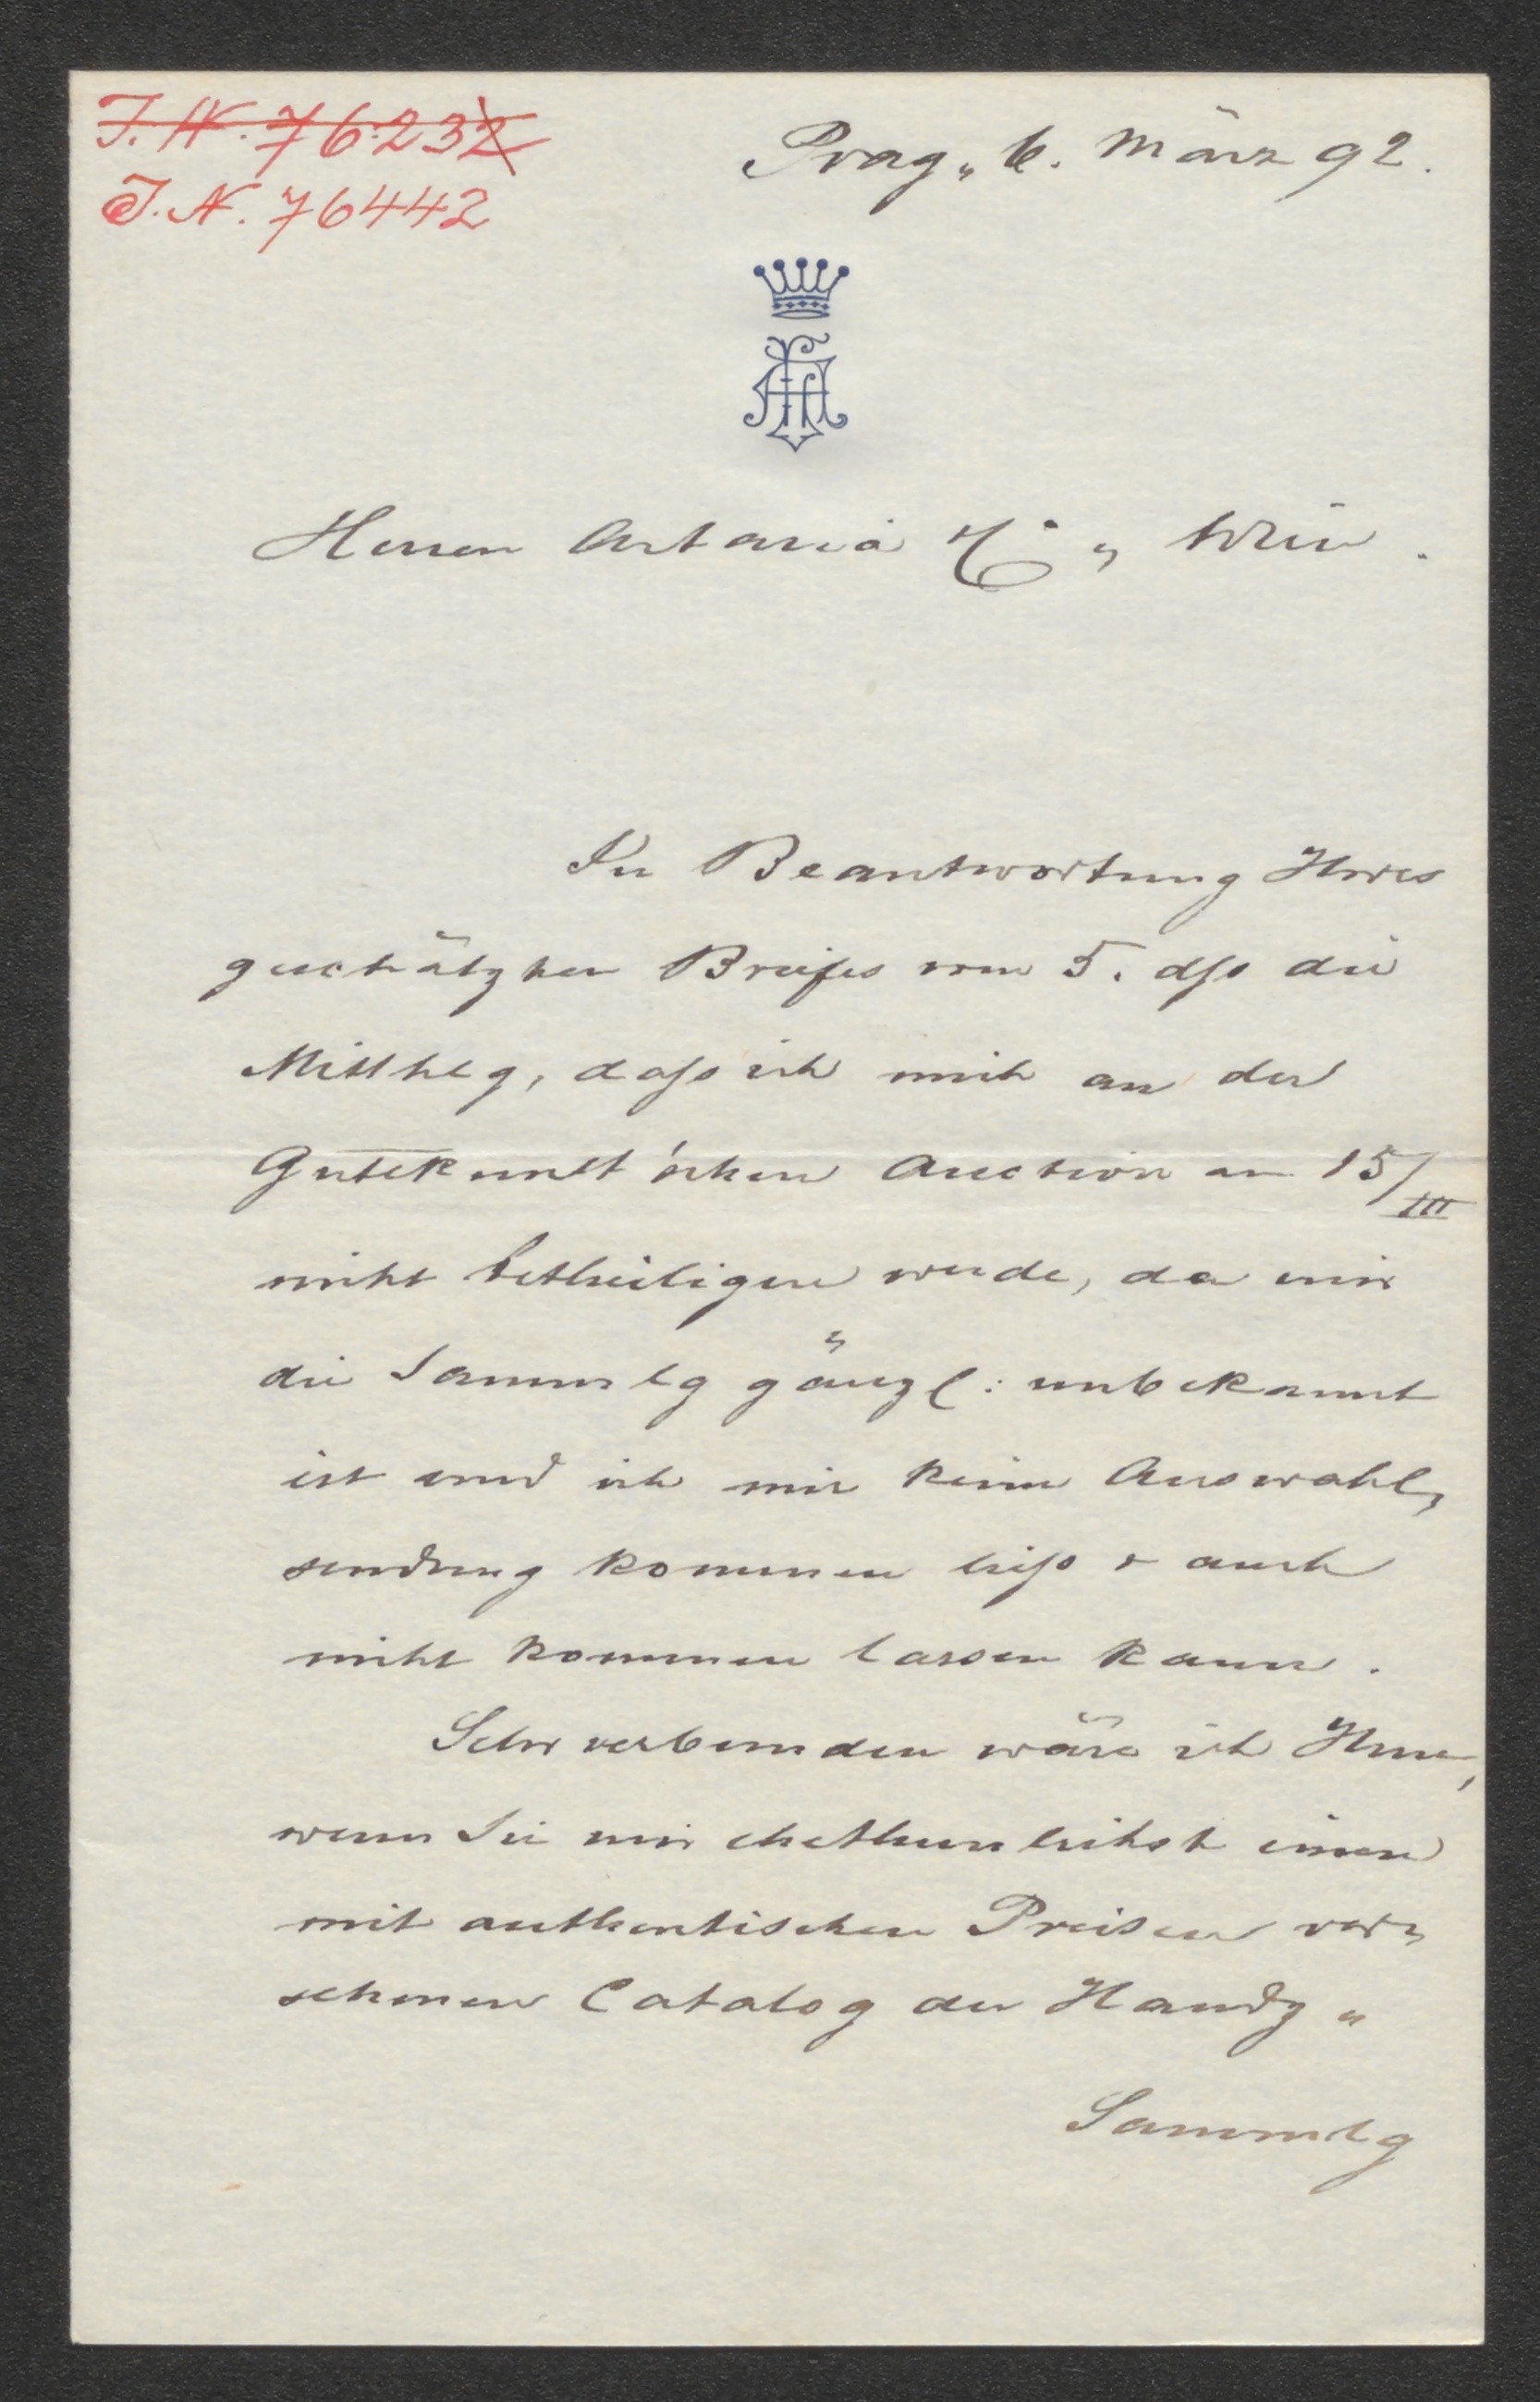 J.N. 76232
J.N. 76442
Prag, 6. März 92.
Herren Artaria & Co, Wien.
In Beantwortung Ihres
geschätzten Briefes vom 5. dss die
Mitthlg, dass ich mich an der
Gutekunst'schen Auction am 15/III
nicht betheiligen werde, da mir
die Sammlg gänzl: unbekannt
ist und ich mir keine Auswahl-
sendung kommen liess & auch
nicht kommen lassen kann.
Sehr verbunden wäre ich Ihnen,
wenn Sie mir ehethunlichst einen
mit authentischen Preisen ver-
sehenen Catalog der Handz-
Sammlg